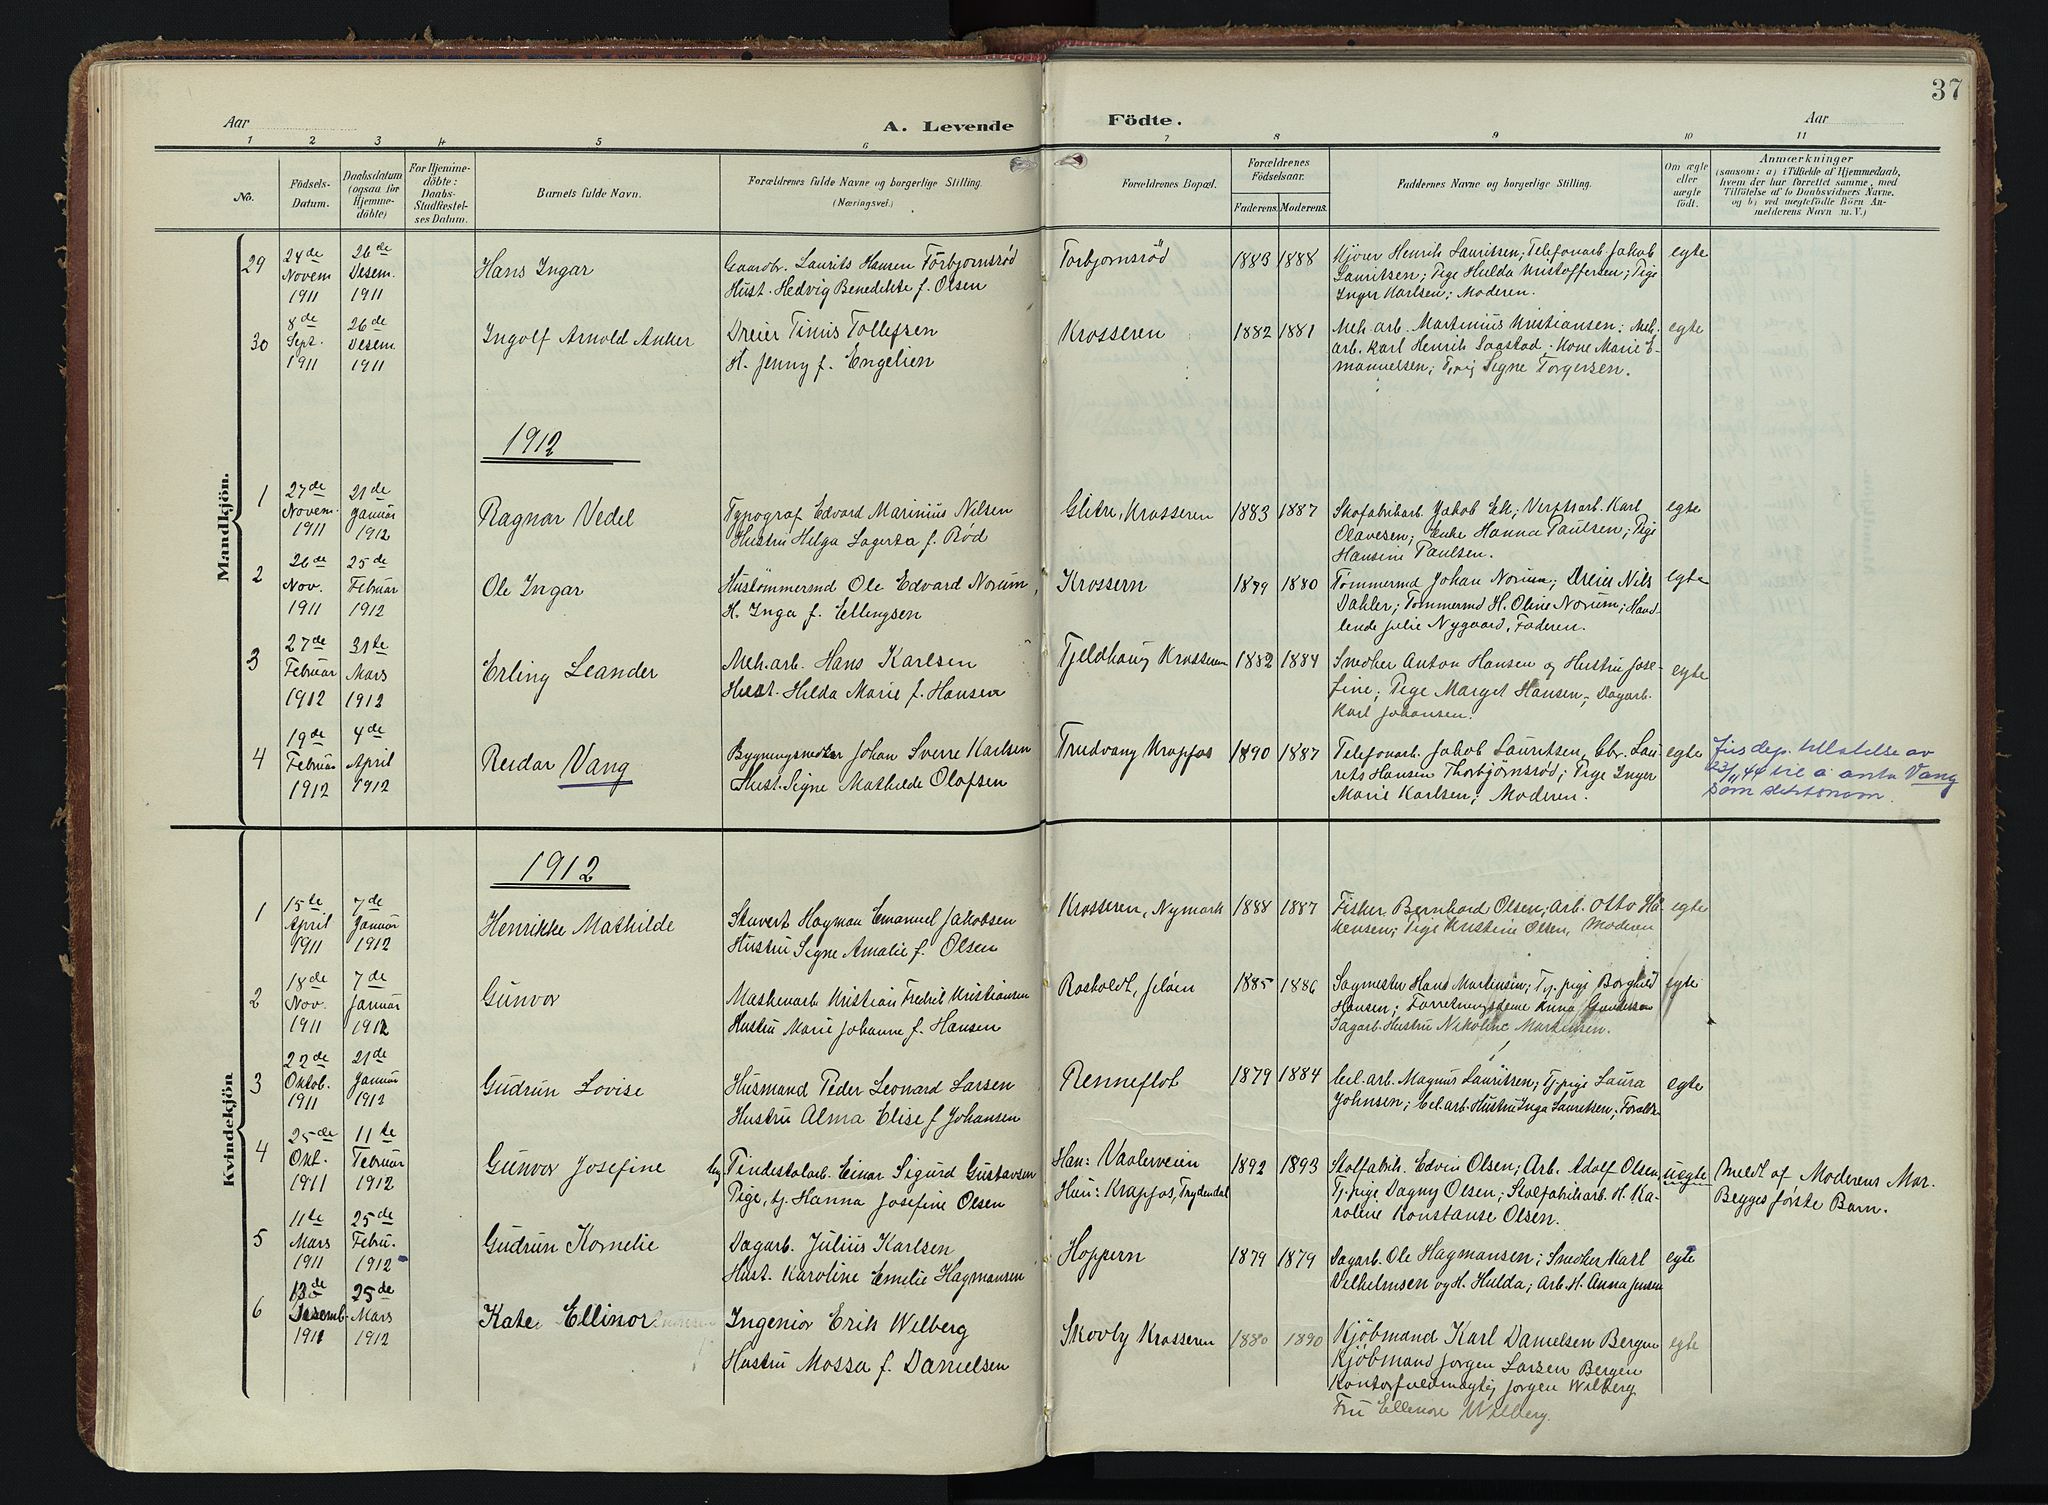 37
Aar
A. Levende
Födte.
Aar
1 2 3 4 5 6 7 8 9 10 11
No.
Födsels-
Datum.
Daabsdatum
(ogsaa for
Hjemme-
döbte)
For Hjemme-
döbte:
Daabs-
Stadfæstel-
ses Datum.
Barnets fulde Navn.
Forældrenes fulde Navne og borgerlige Stilling.
(Næringsvei.)
Forældrenes Bopæl.
Forældrenes
Födselsaar.
Faderens. Moderens.
Faddernes Navne og borgerlige Stilling.
Om ægte
eller
uægte
født.
Anmærkninger
(saasom: a) i Tilfælde af Hjemmedaab,
hvem der har forrettet samme, med
Tilföielse af to Daabsvidners Navne.
og b) ved uægtefödte Börn An-
melderens Navn m. V.)
Mandkjön.
29
24de
Novem
1911
26de
Desem.
1911
Hans Ingar
Gaardbr. Laurits Hansen Torbjornsrød
Hust. Hedvig Benedikte f. Olsen
Torbjornsrød
1883 1888
Kjører Henrik Lauritsen; Telefonarb. Jakob
Lauritsen; Pige Hulda Kristoffersen; Pige
Inger Karlsen; Moderen.
egte
30
8de
Sept.
1911
26de
Desem
1911
Ingolf Arnold Anker
Dreier Tinius Tollefsen
H. Jenny f. Engelien
Krosseren
1882 1881
Mek. arb. Martinius Kristiansen; Mek.
arb. Karl Henrik Saastad. Kone Marie E-
manuelsen; Signe Torgersen.
egte
1912
1
27de
Novem.
1911
21de
Januar
1912
Ragnar Vedel
Typograf Edvard Marinius Nilsen
Hustru Helga Lagerta f. Rød
Glitre, Krosseren
1883 1887
Skofabrikarb. Jakob Ek; Verftarb. Karl
Olavesen; Enke Hanna Paulsen; Pige
Hansine Paulsen.
egte
2
26de
Nov.
1911
25de
Februar
1912
Ole Ingar
Hustømmermd Ole Edvard Norum,
H. Inga f. Ellingsen
Krossern
1879 1880
Tømmermd Johan Norum; Dreier Nils
Dahler; Tømmermd H. Oline Norum; Hand-
lende Julie Nygaard, Faderen.
egte
3
27de
Februar
1912
31te
Mars
1912
Erling Leander
Mek. arb. Hans Karlsen
Hust. Hilda Marie f. Hansen
Fjeldhaug Krosseren
1882 1884
Snedker Anton Hansen og Hustru Jose-
fine; Pige Margit Hansen; Dagarb.
Karl Johansen.
egte
4
19de
Februar
1912
4de
April
1912
Reidar Vang
Bygningsnedker Johan Sverre Karlsen
Hust. Signe Mathilde Olafsen
Trudvang Krapfos
1890 1887
Telefonarb. Jakob Lauritsen, Gbr. Lau-
rits Hansen Thorbjørnsrød; Pige Inger
Marie Karlsen; Moderen.
egte
Jus dep. tillatelse av
23/11 44 til å anta Vang
som slektsnavn.
Kvindekjön
1912
1
15te
April
1911
7de
Januar
1912
Henrikke Mathilde
Stuvert Hagman Emanuel Jakobsen
Hustru Signe Amalie f. Olsen
Krosseren, Nymark
1888 1887
Fisker Bernhard Olsen, Arb. Otto Ha-
kensen; Pige Kristine Olsen, Moderen
egte
2
18de
Nov.
1911
7de
Januar
1912
Gunvor
Maskenarb Kristian Fredrik Kristiansen
Hustru Marie Johanne f. Hansen
Rosholdt, Jeløen
1885 1886
Sagmester Hans Martinsen; Tj. pige Borghild
Hansen; Forretningsdame Anna Gundersen
Sagarb. Hustru Nikoline Martinsen.
egte
3
22de
Oktob.
1911
21de
Januar
1912
Gudrun Lovise
Husmand Peder Leonard Larsen
Hustru Alma Elise f Johansen
Renneflot
1879 1884
Cel. arb. Magnus Lauritsen; Tj. pige Laura
Johnsen; Cel. arb. Hustru Inga Lauritsen; Forældr
egte
4
25de
Okt.
1911
11te
Februar
1912
Gunvor Josefine
Ung Tindestolarb. Einar Sigurd Gustavsen
Pige, tj. Hanna Josefine Olsen
Han: Vaalerveien
Hun: Krapfos, Trydendal
1892 1893
Stolfabrik. Edvin Olsen; Arb. Adolf Olsen,
Tj. pige Dagny Olsen; Stolfabrikarb. H. Ka-
roline Konstanse Olsen.
uegte
Meldt af Moderens Mor.
Begges første Barn.
5
11te
Mars
1911
25de
Febru.
1912
Gudrun Kornelie
Dagarb. Julius Karlsen
Hust. Karoline Emelie Hagmansen
Hoppern
1879 1879
Dagarb. Ole Hagmansen; Snedker Karl
Vilhelmsen og H. Hulda; Arb. H. Anna Jensen
egte
6
13de
Desemb.
1911
25de
Mars
1912
Kate Ellinor
Ingeniør Erik Wilberg
Hustru Mossa f. Danielsen
Skovly Krosseren
1880 1890
Kjöbmand Karl Danielsen Bergen
Kjöbmand Jørgen Larsen Bergen
Kontorfuldmægtig Jørgen Wilberg
Fru Ellinor Wilberg.
egte